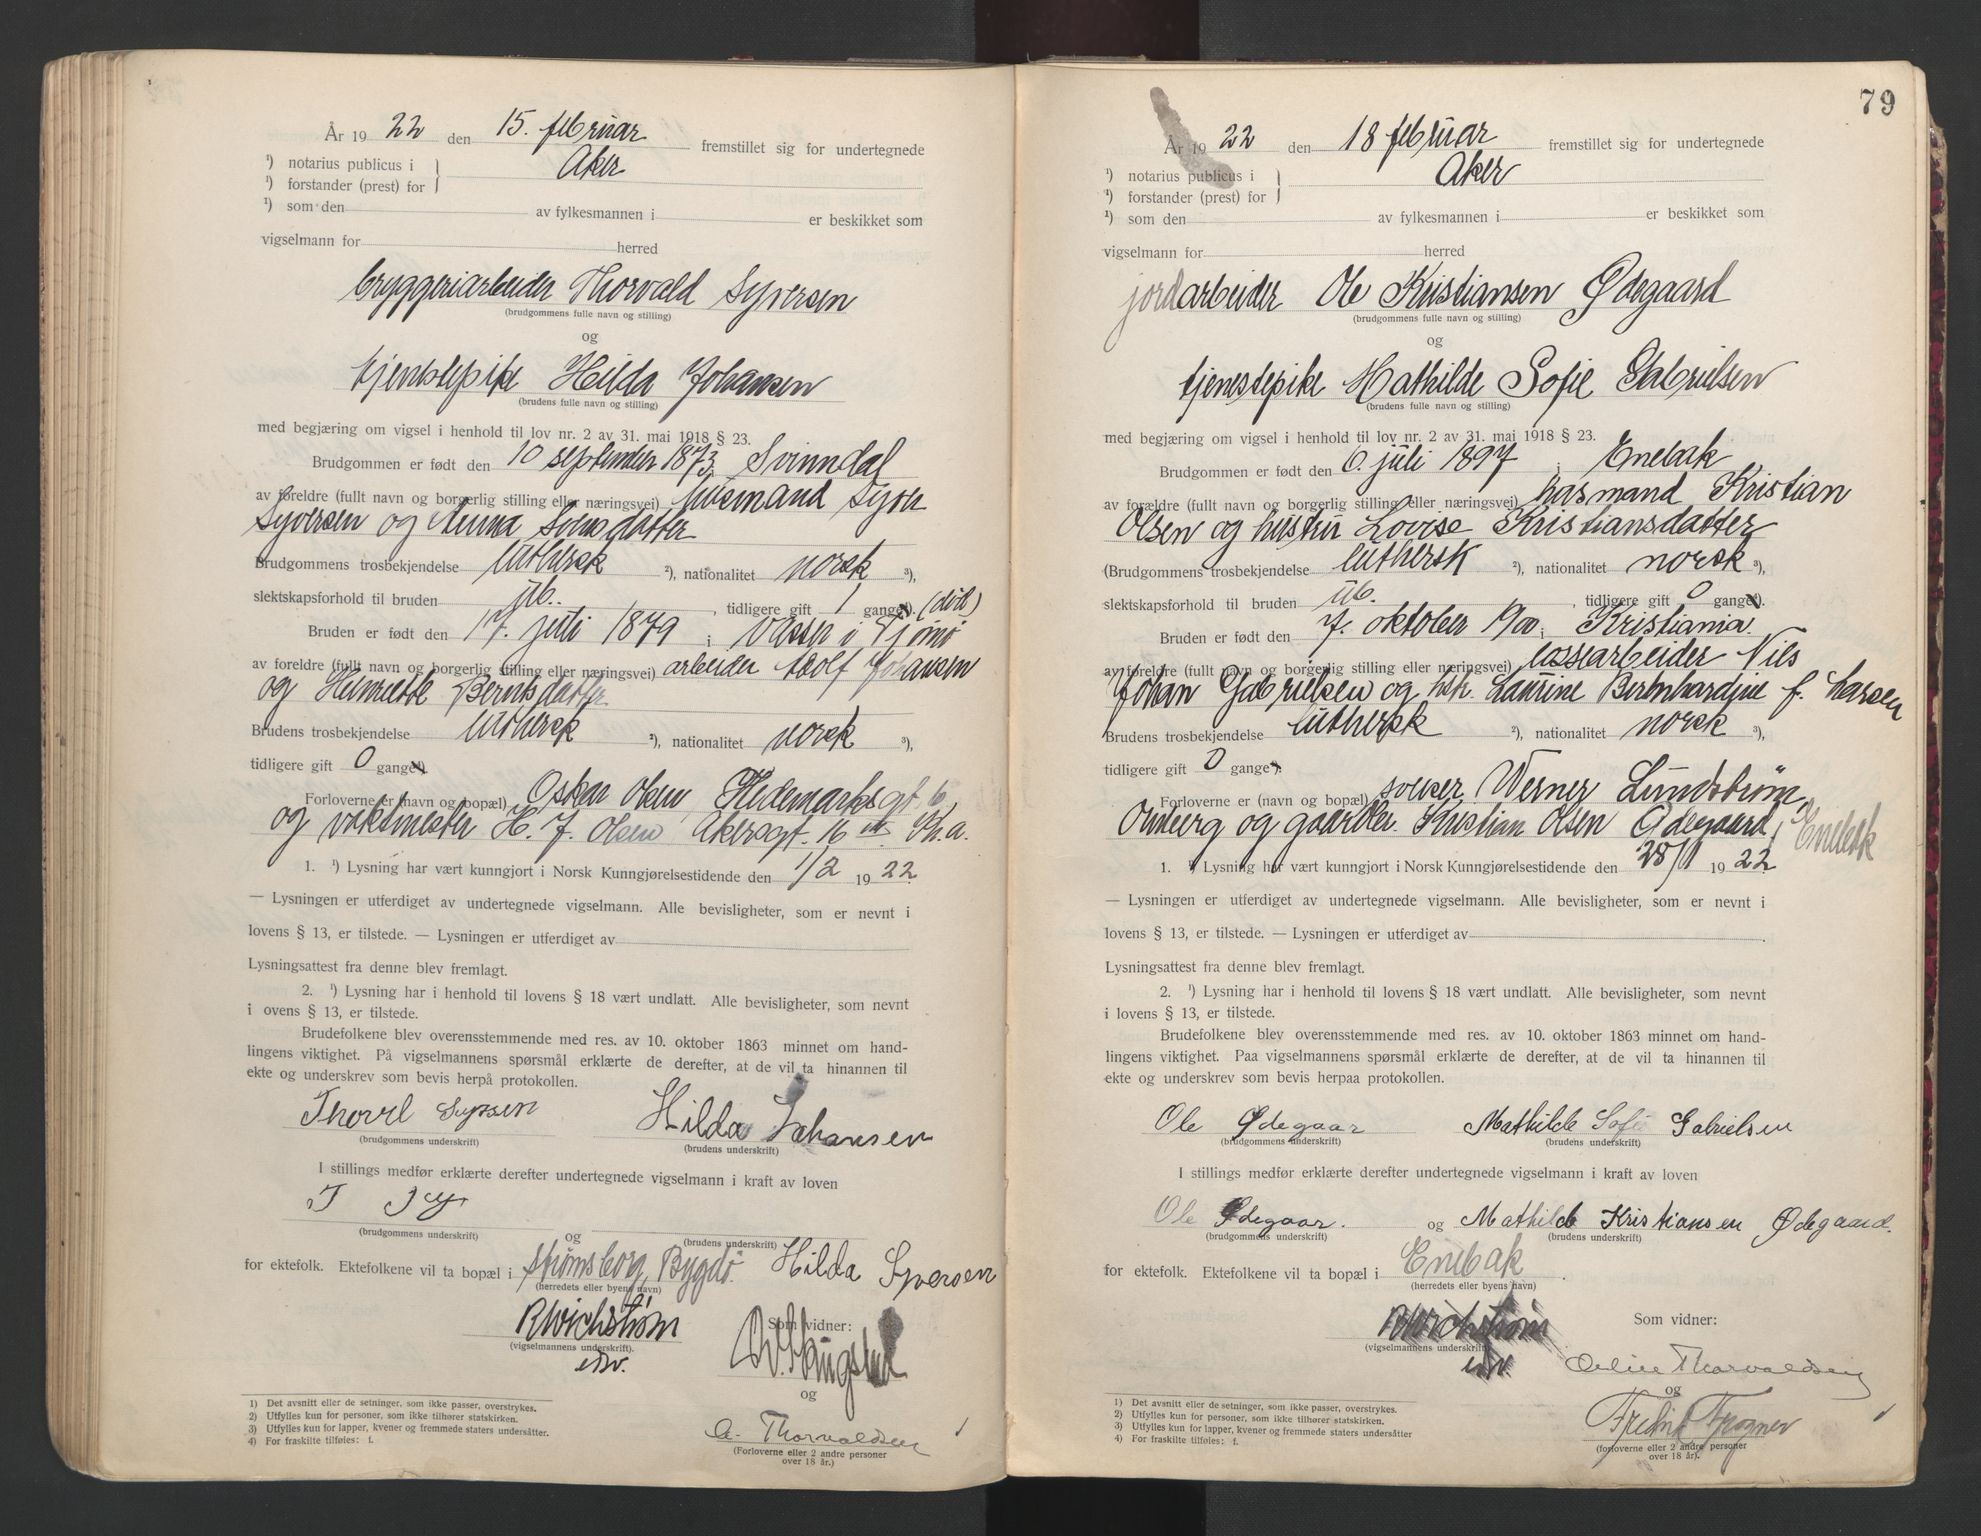 År 1922 den 15. februar fremstillet sig for undertegnede
¹) notarius publicus i } Aker
¹) forstander (prest) for
¹) som den av fylkesmannen i er beskikket som
vigselmann for herred
bryggeriarbeider Thorvald Syversen
(brudgommens fulle navn og stilling)
og
tjenstepike Hilda Johansen
(brudens fulle navn og stilling)
med begjæring om vigsel i henhold til lov nr. 2 av 31. mai 1918 § 23.
Brudgommen er født den 10 september 1873; Svinndal
av foreldre (fullt navn og borgerlig stilling eller næringsvei) husmand Syver
Syversen og Anna
Brudgommens trosbekjendelse luthersk ²), nationalitet norsk ³),
slektskapsforhold til bruden ub. , tidligere gift 1 gange⁴). (död)
Bruden er født den 17. juli 1879 ; Vasser i Tjömö
av foreldre (fullt navn og borgerlig stilling eller næringsvei) arbeider Adolf Johansen
og Henriette Berntsdatter
Brudens trosbekjendelse luthersk ²), nationalitet norsk ³),
tidligere gift 0 gange⁴).
Forloverne er (navn og bopæl) Oskar Olsen Hedemarksgt. 6
og vaktmester H. J. Olsen Akersgt. 16 Kr.a.
1. ¹) Lysning har vært kunngjort i Norsk Kunngjørelsestidende den 1/2 1922
— Lysningen er utferdiget av undertegnede vigselmann. Alle bevisligheter, som er nevnt i
lovens § 13, er tilstede. — Lysningen er utferdiget av
Lysningsattest fra denne blev fremlagt.
2. ¹) Lysning har i henhold til lovens § 18 vært undlatt. Alle bevisligheter, som nevnt
i ovens § 13, er tilstede.
Brudefolkene blev overensstemmende med res. av 10. oktober 1863 minnet om hand-
lingens viktighet. På vigselmannens spørsmål erklærte de derefter, at de vil ta hinannen til
ekte og underskrev som bevis herpå protokollen.
Thorvl Syvesen Hilda Johansen
(brudgommens underskrift) (brudens underskrift)
I stillings medfør erklærte derefter undertegnede vigselmann i kraft av loven
T Sy
(brudgommens underskrift) og (brudens underskrift)
for ektefolk. Ektefolkene vil ta bopæl i Strømsborg, Bygdö. Hilda Syversen
(herredets eller byens navn)
RWichstrøm Som vidner:
(vigselmannens underskrift).
edv.
og
A. Thorvaldsen
(Forloverne eller 2 andre personer
over 18 år.)
1) Det avsnitt eller de setninger, som ikke passer, overstrykes.
2) Utfylles kun for personer, som ikke tilhører statskirken.
3) Utfylles kun for lapper, kvener og fremmede staters undersåtter.
4) For fraskilte tilføies: f.
79
År 1922 den 18 februar fremstillet sig for undertegnede
¹) notarius publicus i } Aker
¹) forstander (prest) for
¹) som den av fylkesmannen i er beskikket som
vigselmann for herred
jordarbeider Ole Kristiansen Ødegaard
(brudgommens fulle navn og stilling)
og
tjenestepike Mathilde Sofie Gabrielsen
(brudens fulle navn og stilling)
med begjæring om vigsel i henhold til lov nr. 2 av 31. mai 1918 § 23.
Brudgommen er født den 6. juli 1897 ; Enebak
av forældre (fullt navn og borgerlig stilling eller næringsvei) husmand Kristian
Olsen og hustru Lovise Kristiansdatter
(Brudgommens trosbekjendelse luthersk ²), nationalitet norsk ³),
slektskapsforhold til bruden ub. , tidligere gift 0 gange⁴).
Bruden er født den 7. oktober 1900; Kristiania.
av foreldre (fullt navn og borgerlig stilling eller næringsvei) lossearbeider Nils
Johan Gabrielsen og hst. Laurine Bernhardine f. Larsen
Brudens trosbekjendelse luthersk ²), nationalitet norsk ³),
tidligere gift 0 gange⁴).
Forloverne er (navn og bopæl) Werner Lundström,
og gaardbr. Kristian Olsen Ødegaard, Enebak
1. ¹) Lysning har vært kunngjort i Norsk Kunngjørelsestidende den 28/1 1922
— Lysningen er utferdiget av undertegnede vigselmann. Alle bevisligheter, som er nevnt i
lovens § 13, er tilstede. — Lysningen er utferdiget av
Lysningsattest fra denne blev fremlagt.
2. ¹) Lysning har i henhold til lovens § 18 vært undlatt. Alle bevisligheter, som nevnt
i lovens § 13, er tilstede.
Brudefolkene blev overensstemmende med res. av 10. oktober 1863 minnet om hand-
lingens viktighet. Paa vigselmannens spørsmål erklærte de derefter, at de vil ta hinannen til
ekte og underskrev som bevis herpaa protokollen.
Ole Ødegaar Mathilde Sofie Gabrielsen
(brudgommens underskrift) (brudens underskrift)
I stillings medfør erklærte derefter undertegnede vigselmann i kraft av loven
Ole Ødegaar. og Mathilde Kristiansen Ødegaard.
(brudgommens underskrift) (brudens underskrift)
for ektefolk. Ektefolkene vil ta bopæl i Enebak
(herredets eller byens navn)
RWichstrøm Som vidner:
(vigselmannens underskrift)
edv. Thorvaldsen
og
Trogner
(forloverne eller 2 andre personer
over 18 år).
1) Det avsnitt eller de setninger, som ikke passer, overstrykes.
2) Utfylles kun for personer, som ikke tilhører statskirken.
3) Utfylles kun for lapper, kvener og fremmede staters undersåtter
4) For fraskilte tilføies: f.